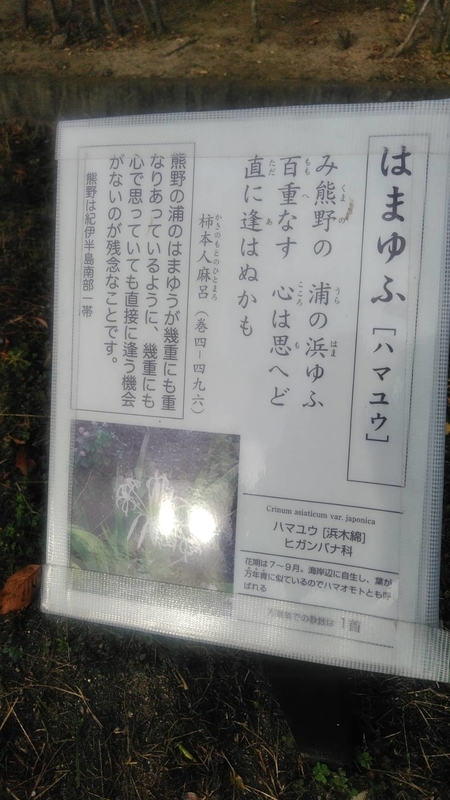 はまゆふ［ハマユウ］
み熊野の　浦の浜ゆふ
百重なす　心は思へど
直に逢はぬかも
柿本人麻呂（巻四－四九六）
熊野の浦のはまゆうが幾重にも重
なりあっているように、幾重にも
心で思っていても直接に逢う機会
がないのが残念なことです。
熊野は紀伊半島南部一帯
Crinum asiaticum var. japonica
ハマユウ［浜木綿］
ヒガンバナ科
花期は7～9月。海岸辺に自生し、葉が
万年青に似ているのでハマオモトとも呼
ばれる
万葉集での歌数は 1首